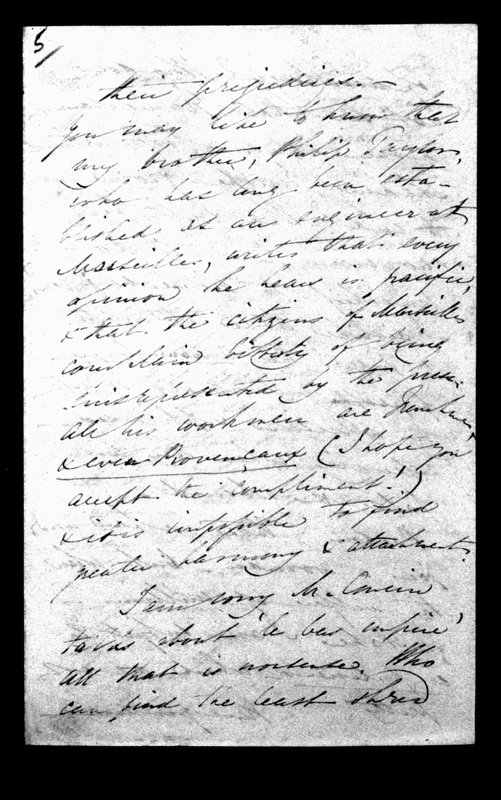 5/
their prejudices.—
You may like to know that
my brother, Philip Taylor,
who has long been esta-
blished as an engineer at
Marseilles, writes that every
opinion he hears is pacific,
& that the citizens of Marseilles
complain bitterly of being
misrepresented by the press.
All his workmen are French,
& even Provençaux (I hope you
accept the compliment!)
& it is impossible to find
greater harmony & attachment.
I am sorry M. Cousin
talks about 'le bas empire'
all that is nonsense. Who
can find the least shred